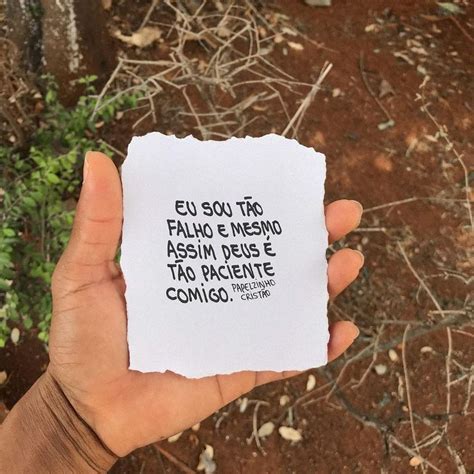 EU SOU TÃO
FALHO E MESMO
ASSIM DEUS É
TÃO PACIENTE
COMIGO. PAPELZINHO
CRISTÃO